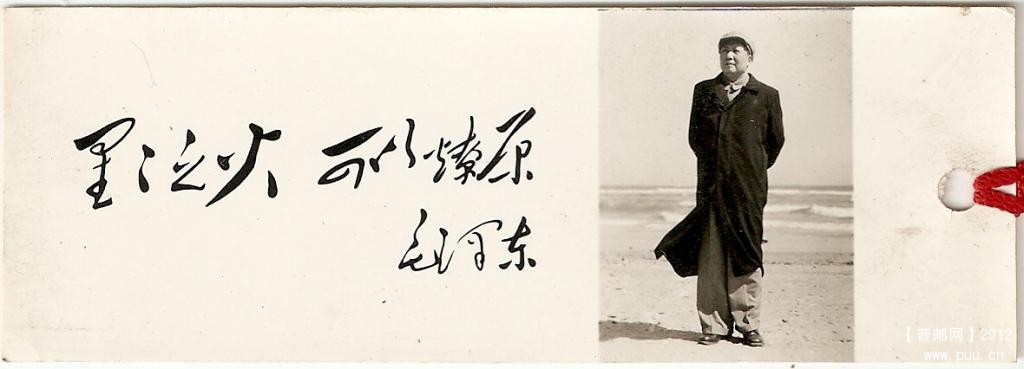 星星之火 可以燎原
毛泽东
【普邮网】2012
www.puu.cn